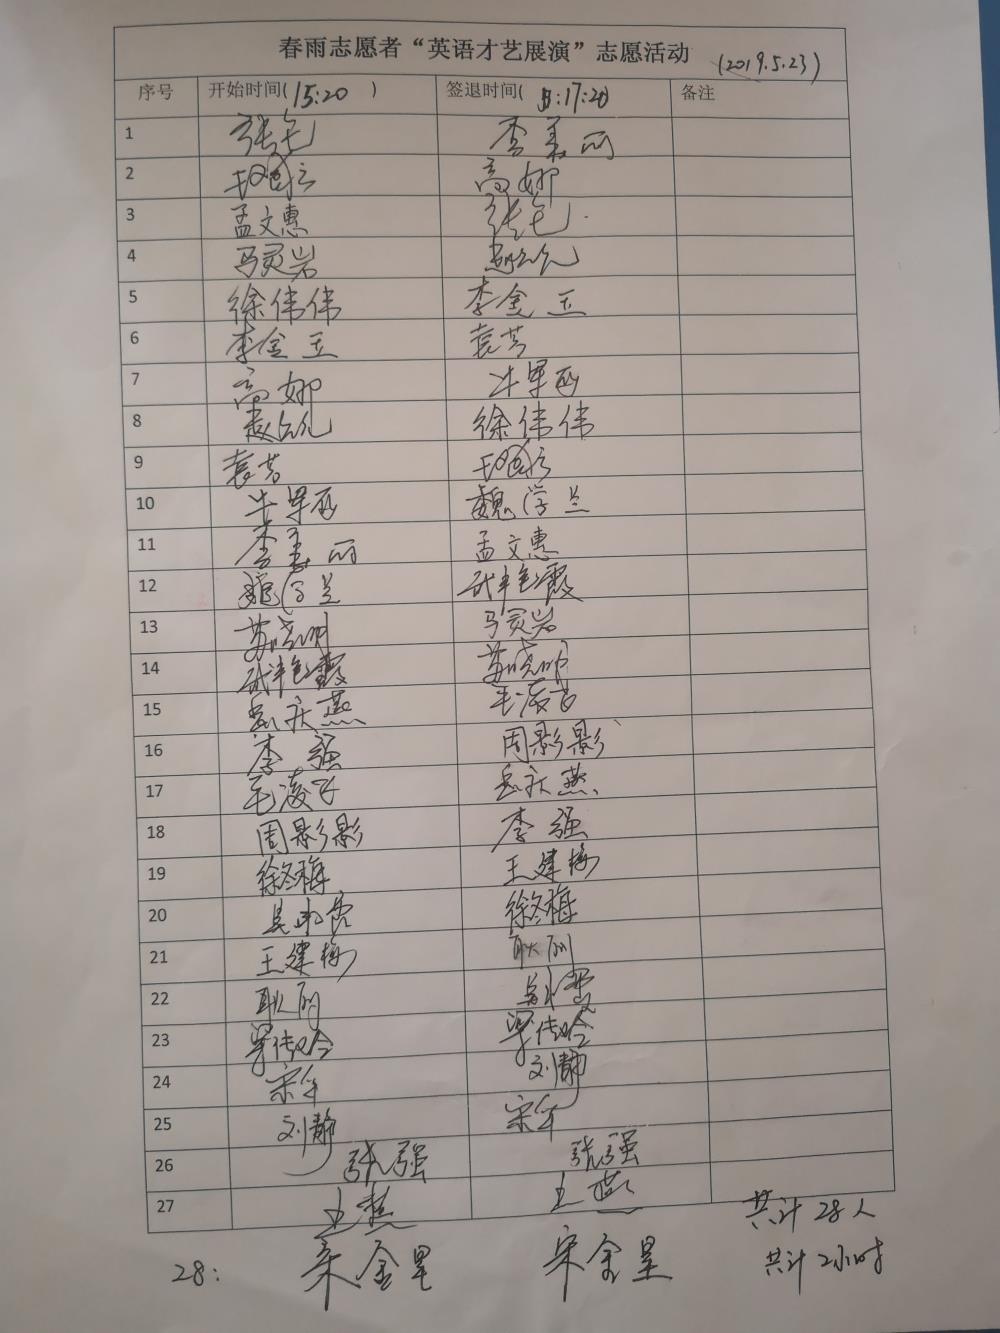 春雨志愿者“英语才艺展演”志愿活动 (2019.5.23)
序号 开始时间(15:20) 签退时间( :17:20) 备注
1 李美丽
2 高娜
3 孟文惠
4 马灵岩
5 徐伟伟 李金玉
6 李金玉 袁芳
7 高娜 牛军
8 赵 徐伟伟
9 袁芳
10 牛军 魏学兰
11 李美丽 孟文惠
12 魏学兰 武艳霞
13 苏晓明 马灵岩
14 武艳霞 苏晓明
15 庆燕 毛凌
16 李强 周影影
17 毛凌 庆燕
18 周影影 李强
19 徐冬梅 王建梅
20 吴 徐冬梅
21 王建梅 耿丽
22 耿丽
23
24 宋军 刘静
25 刘静 宋军
26 张强 张强
27 王燕 王燕 共计28人
28: 宋金星 宋金星 共计2小时